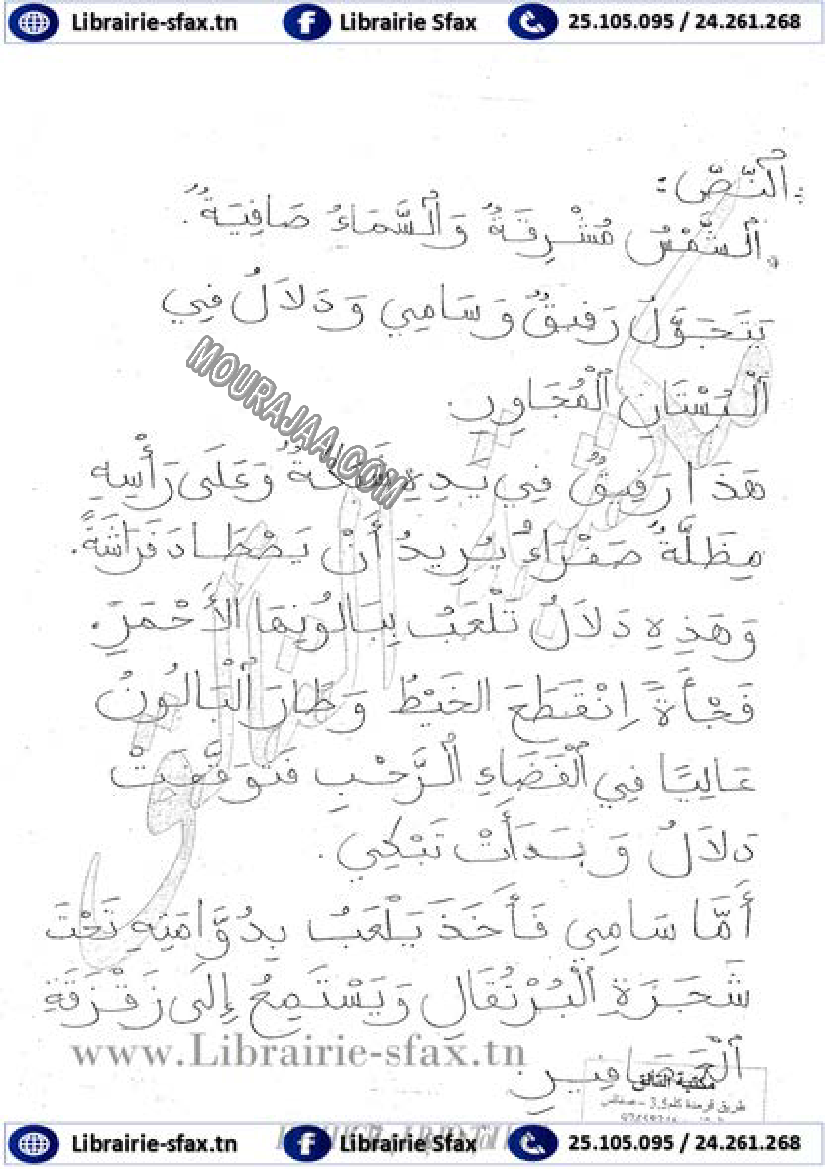 Librairie-sfax.tn Librairie Sfax 25.105.095 / 24.261.268
اَلنَّصّ :
اَلشَّمْسُ مُشْرِقَةٌ وَالسَّمَاءُ صَافِيَةٌ.
يَتَجَوَّلُ رَفِيقٌ وَسَامِي وَدَلَالُ فِي
اَلْبُسْتَانِ اَلْمُجَاوِرِ.
MOURAJAA.COM
هَذَا رَفِيقٌ فِي يَدِهِ شَبَكَةٌ وَعَلَى رَأْسِهِ
مِظَلَّةٌ صَفْرَاءُ يُرِيدُ أَنْ يَصْطَادَ فَرَاشَةً.
وَهَذِهِ دَلَالُ تَلْعَبُ بِبَالُونِهَا الأَحْمَرِ.
فَجْأَةً اِنْقَطَعَ الخَيْطُ وَطَارَ اَلْبَالُونُ
عَالِيًا فِي اَلْفَضَاءِ الرَّحْبِ فَتَوَقَّفَتْ
دَلَالُ وَبَدَأَتْ تَبْكِي.
أَمَّا سَامِي فَأَخَذَ يَلْعَبُ بِدُوَّامَتِهِ تَحْتَ
شَجَرَةِ اَلْبُرْتُقَالِ وَيَسْتَمِعُ إِلَى زَقْزَقَةِ
www.Librairie-sfax.tn
اَلْعَصَافِيرِ.
مكتبة التألق
طريق قرمدة كلم 3.5 - صفاقس
Librairie-sfax.tn Librairie Sfax 25.105.095 / 24.261.268